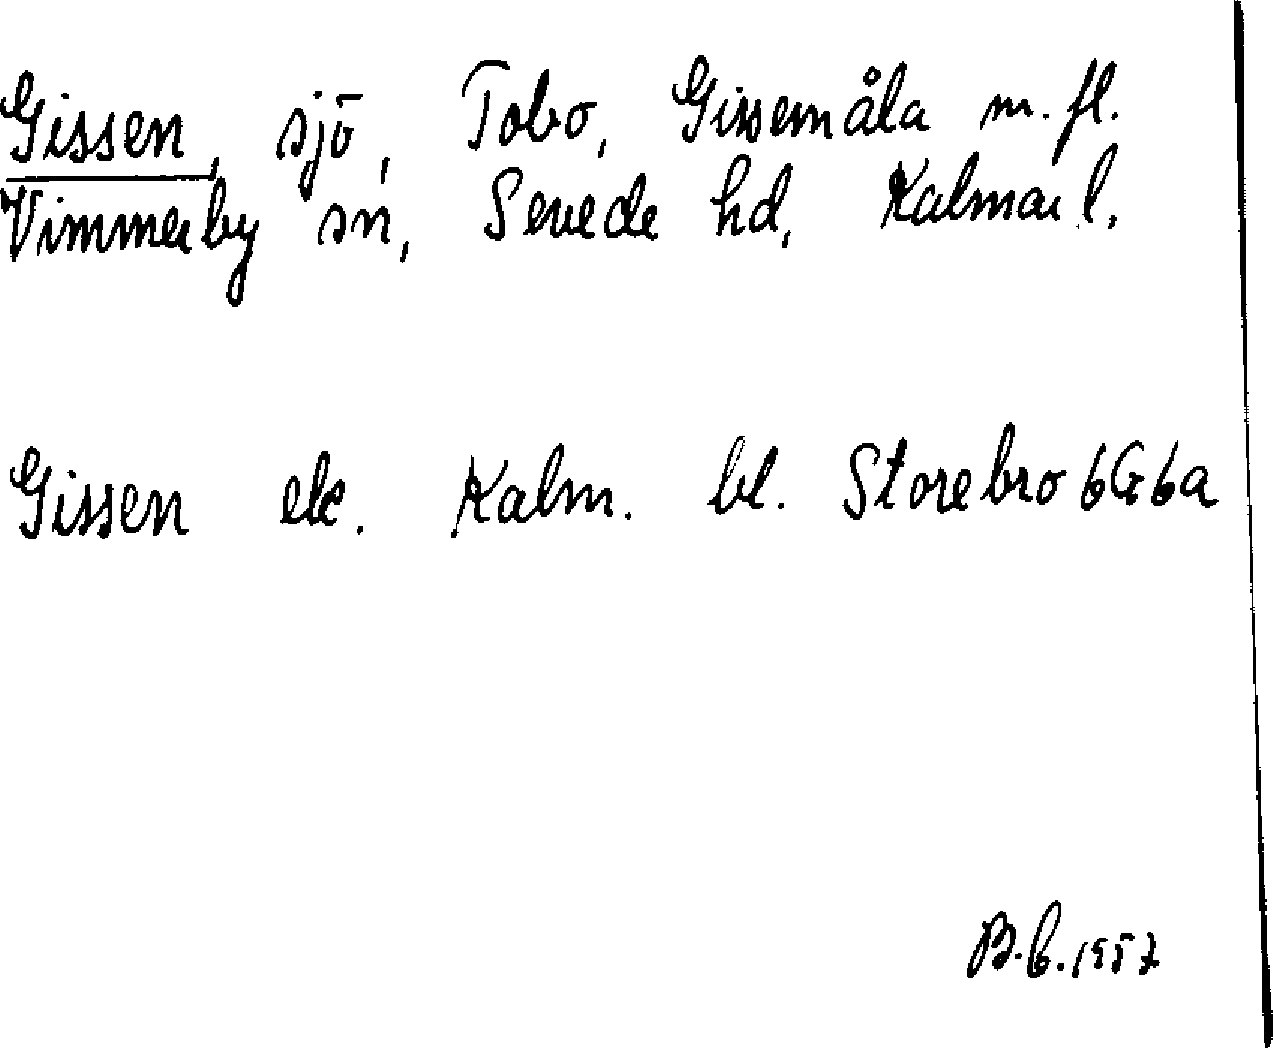 Gissen, sjö, Tobo, Gissemåla m.fl.
Vimmerby sn, Sevede hd, Kalmar l.
Gissen ek. Kalm. bl. Storebro 6G6a
B.b. 1957